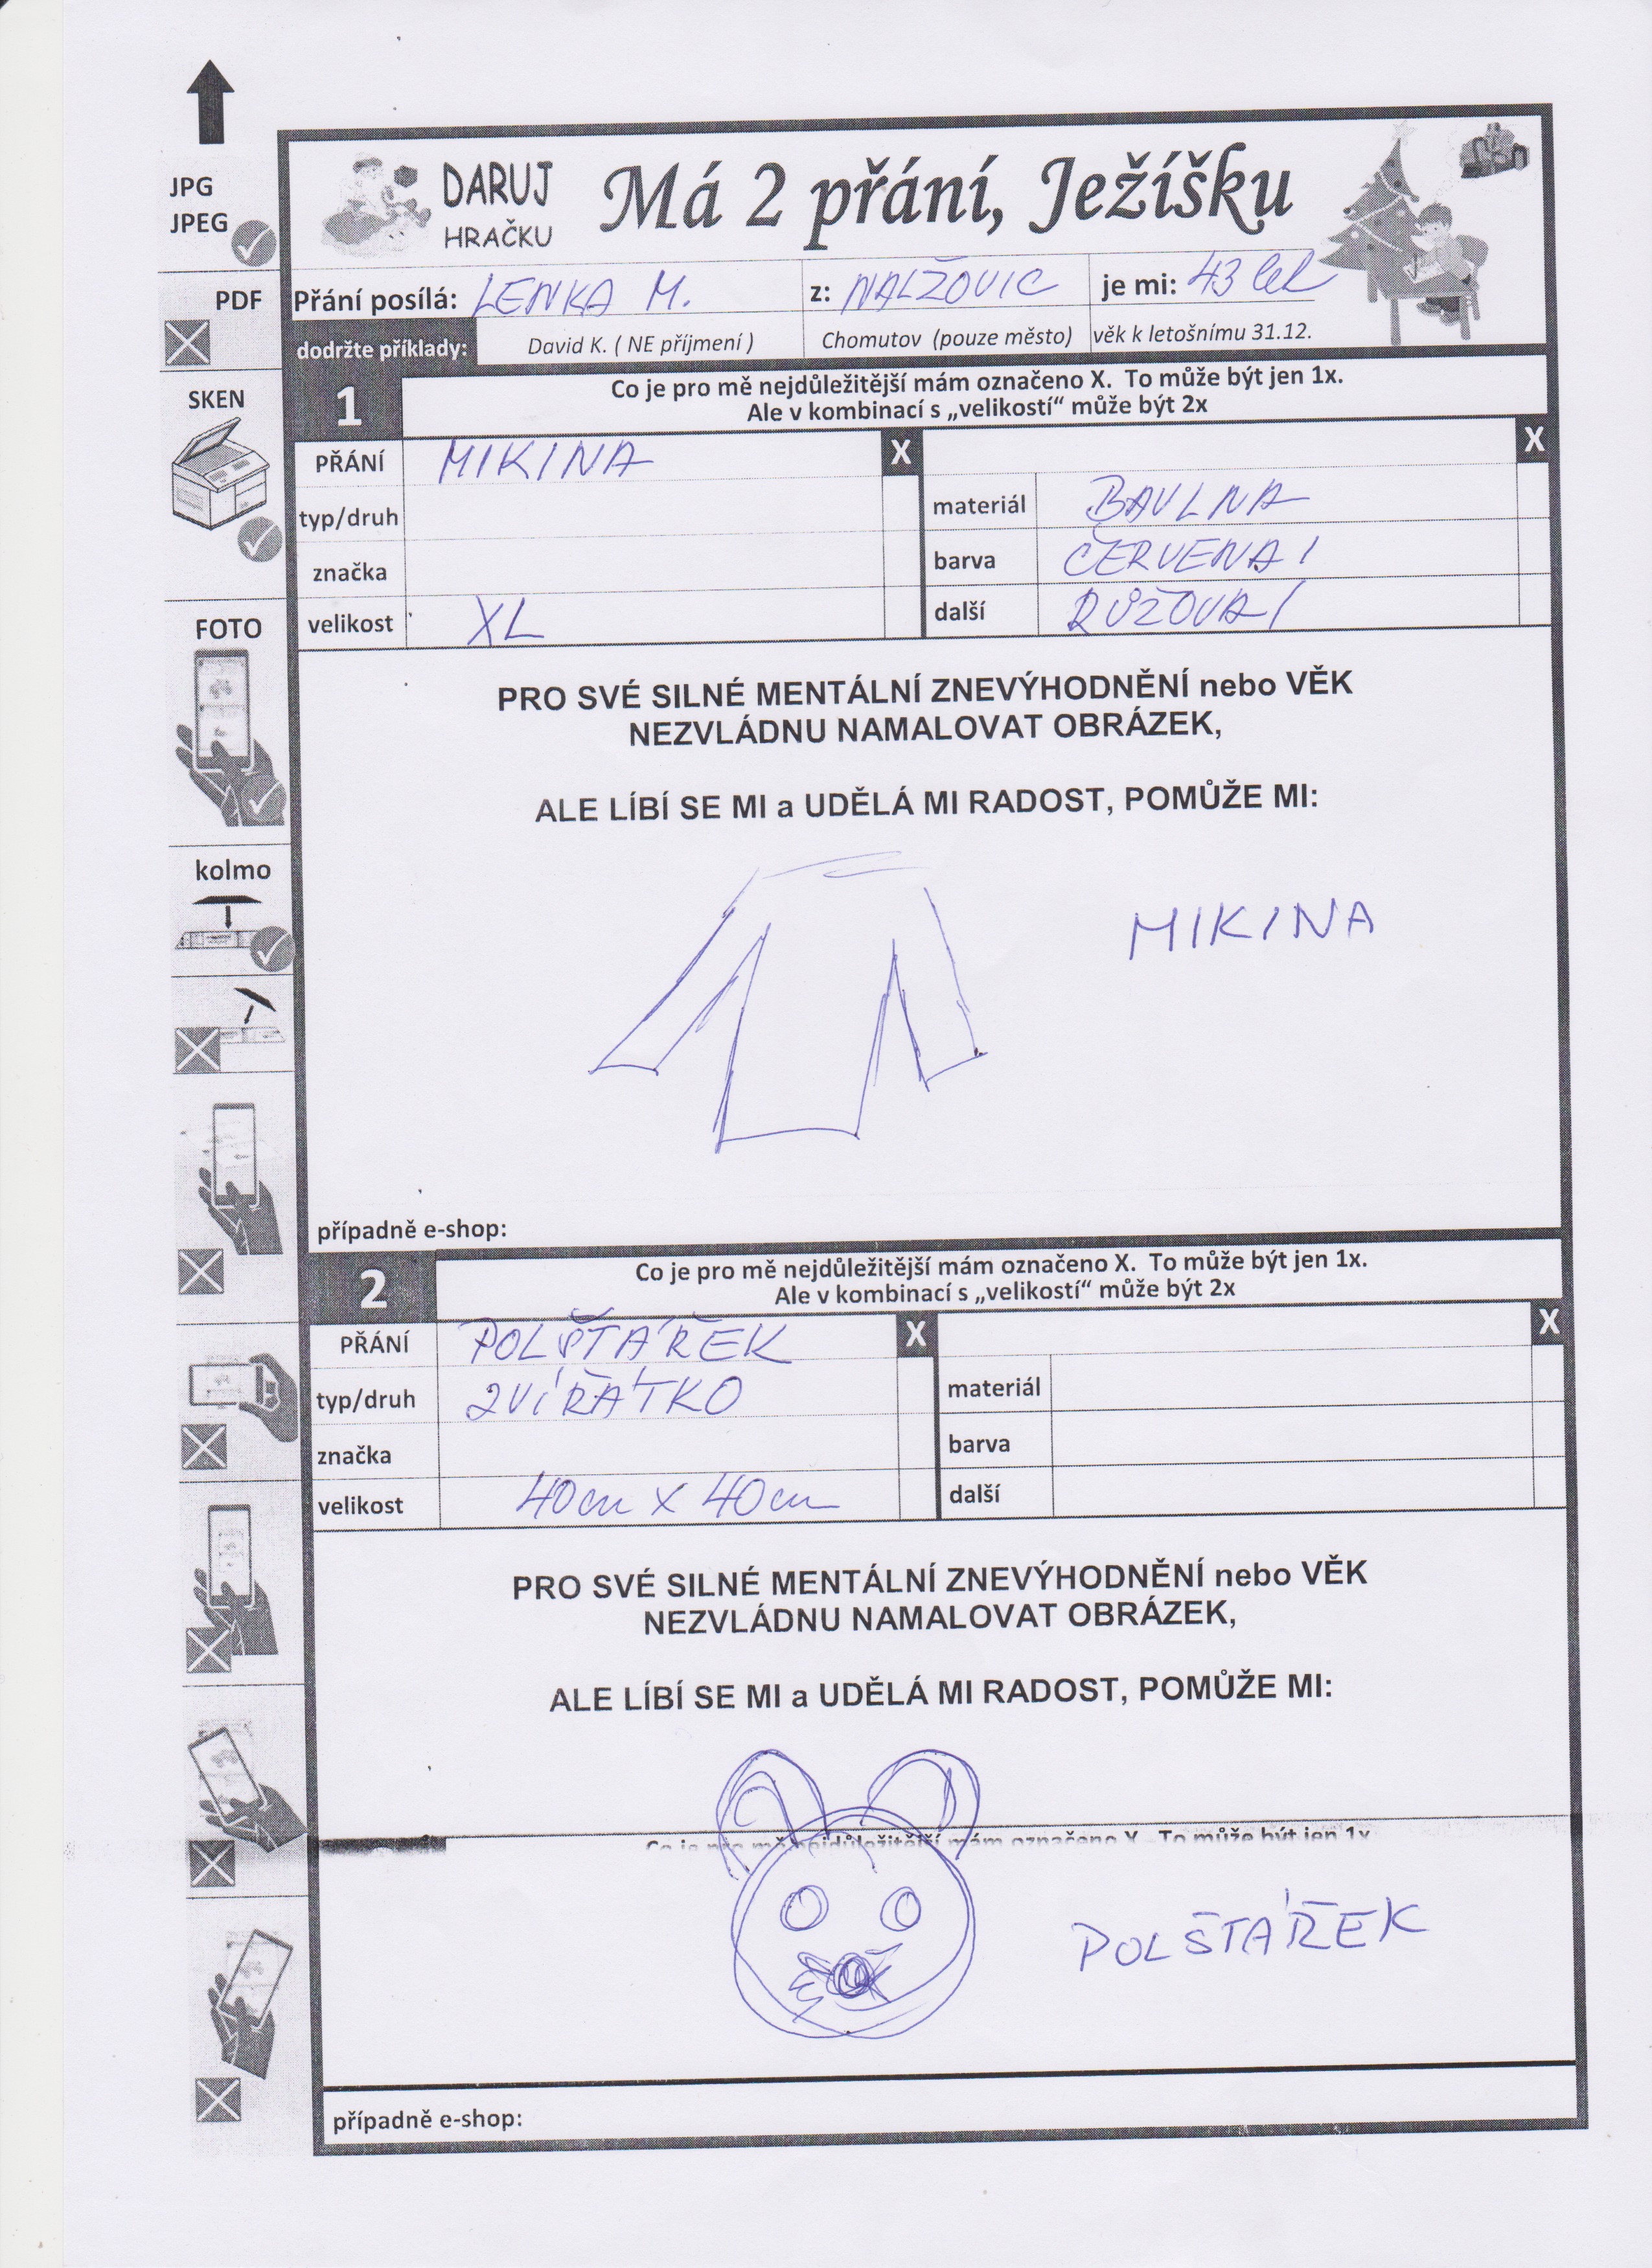 JPG
JPEG
PDF
SKEN
FOTO
kolmo
DARUJ
HRAČKU
Má 2 přání, Ježíšku
Přání posílá: LENKA M. z: NALŽOVIC je mi: 43 let
dodržte příklady: David K. ( NE příjmení ) Chomutov (pouze město) věk k letošnímu 31.12.
1 Co je pro mě nejdůležitější mám označeno X. To může být jen 1x.
Ale v kombinací s „velikostí“ může být 2x
PŘÁNÍ MIKINA X X
typ/druh materiál BAVLNA
značka barva ČERVENÁ
velikost XL další RŮŽOVÁ
PRO SVÉ SILNÉ MENTÁLNÍ ZNEVÝHODNĚNÍ nebo VĚK
NEZVLÁDNU NAMALOVAT OBRÁZEK,
ALE LÍBÍ SE MI a UDĚLÁ MI RADOST, POMŮŽE MI:
MIKINA
případně e-shop:
2 Co je pro mě nejdůležitější mám označeno X. To může být jen 1x.
Ale v kombinací s „velikostí“ může být 2x
PŘÁNÍ POLŠTÁŘEK X X
typ/druh ZVÍŘÁTKO materiál
značka barva
velikost 40cm x 40cm další
PRO SVÉ SILNÉ MENTÁLNÍ ZNEVÝHODNĚNÍ nebo VĚK
NEZVLÁDNU NAMALOVAT OBRÁZEK,
ALE LÍBÍ SE MI a UDĚLÁ MI RADOST, POMŮŽE MI:
Co je pro mě nejdůležitější mám označeno X. To může být jen 1x
POLŠTÁŘEK
případně e-shop: